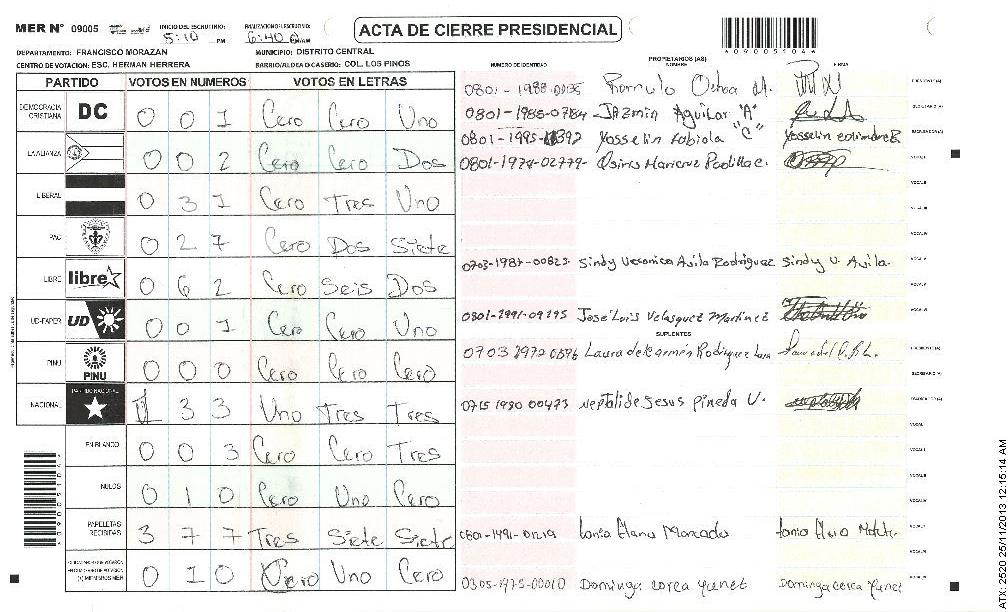 MER Nº 09005 INICIO DEL ESCRUTINIO: 5:10 PM FINALIZACION ESCRUTINIO: 6:40 AM
ACTA DE CIERRE PRESIDENCIAL
DEPARTAMENTO: FRANCISCO MORAZAN MUNICIPIO: DISTRITO CENTRAL
CENTRO DE VOTACION: ESC. HERMAN HERRERA BARRIO/ALDEA O CASERIO: COL. LOS PINOS
PARTIDO VOTOS EN NUMEROS VOTOS EN LETRAS
DEMOCRACIA CRISTIANA DC 0 0 1 Cero Cero Uno
LA ALIANZA 0 0 2 Cero Cero Dos
LIBERAL 0 3 1 Cero Tres Uno
PAC 0 2 7 Cero Dos Siete
LIBRE libre 0 6 2 Cero Seis Dos
UD-FAPER UD 0 0 1 Cero Cero Uno
PINU PINU 0 0 0 Cero Cero Cero
NACIONAL PARTIDO NACIONAL 1 3 3 Uno Tres Tres
EN BLANCO 0 0 3 Cero Cero Tres
NULOS 0 1 0 Cero Uno Cero
PAPELETAS RECIBIDAS 3 7 7 Tres Siete Siete
(1) MIEMBROS MER 0 1 0 Cero Uno Cero
PROPIETARIOS (AS)
NUMERO DE IDENTIDAD NOMBRE FIRMA
0801-1988- Romulo Ochoa M. PRESIDENTE(A)
0801-1985-03784 JAZmin Aguilar "A" SECRETARIO(A)
0801-1995- Yosselin Fabiola "C" Yosselin
0801-1974-02779 Osiris Maricruz Padilla C. VOCAL I
0703-1987-00823 Sindy Veronica Avila Rodriguez Sindy V. Avila.
0801-1991-09195 Jose Luis Velasquez Martinez
SUPLENTES
0703 1972 0596 Laura del Carmen Rodriguez PRESIDENTE(A)
SECRETARIO(A)
0715 1980 00473 Neptali de Jesus Pineda V.
0801-1991- Sonia Elana Moncada
0305-1975-00010 Dominga Corea Yanet Dominga Corea Yanet
*09005104*
ATX: 2520 25/11/2013 12:15:14 AM